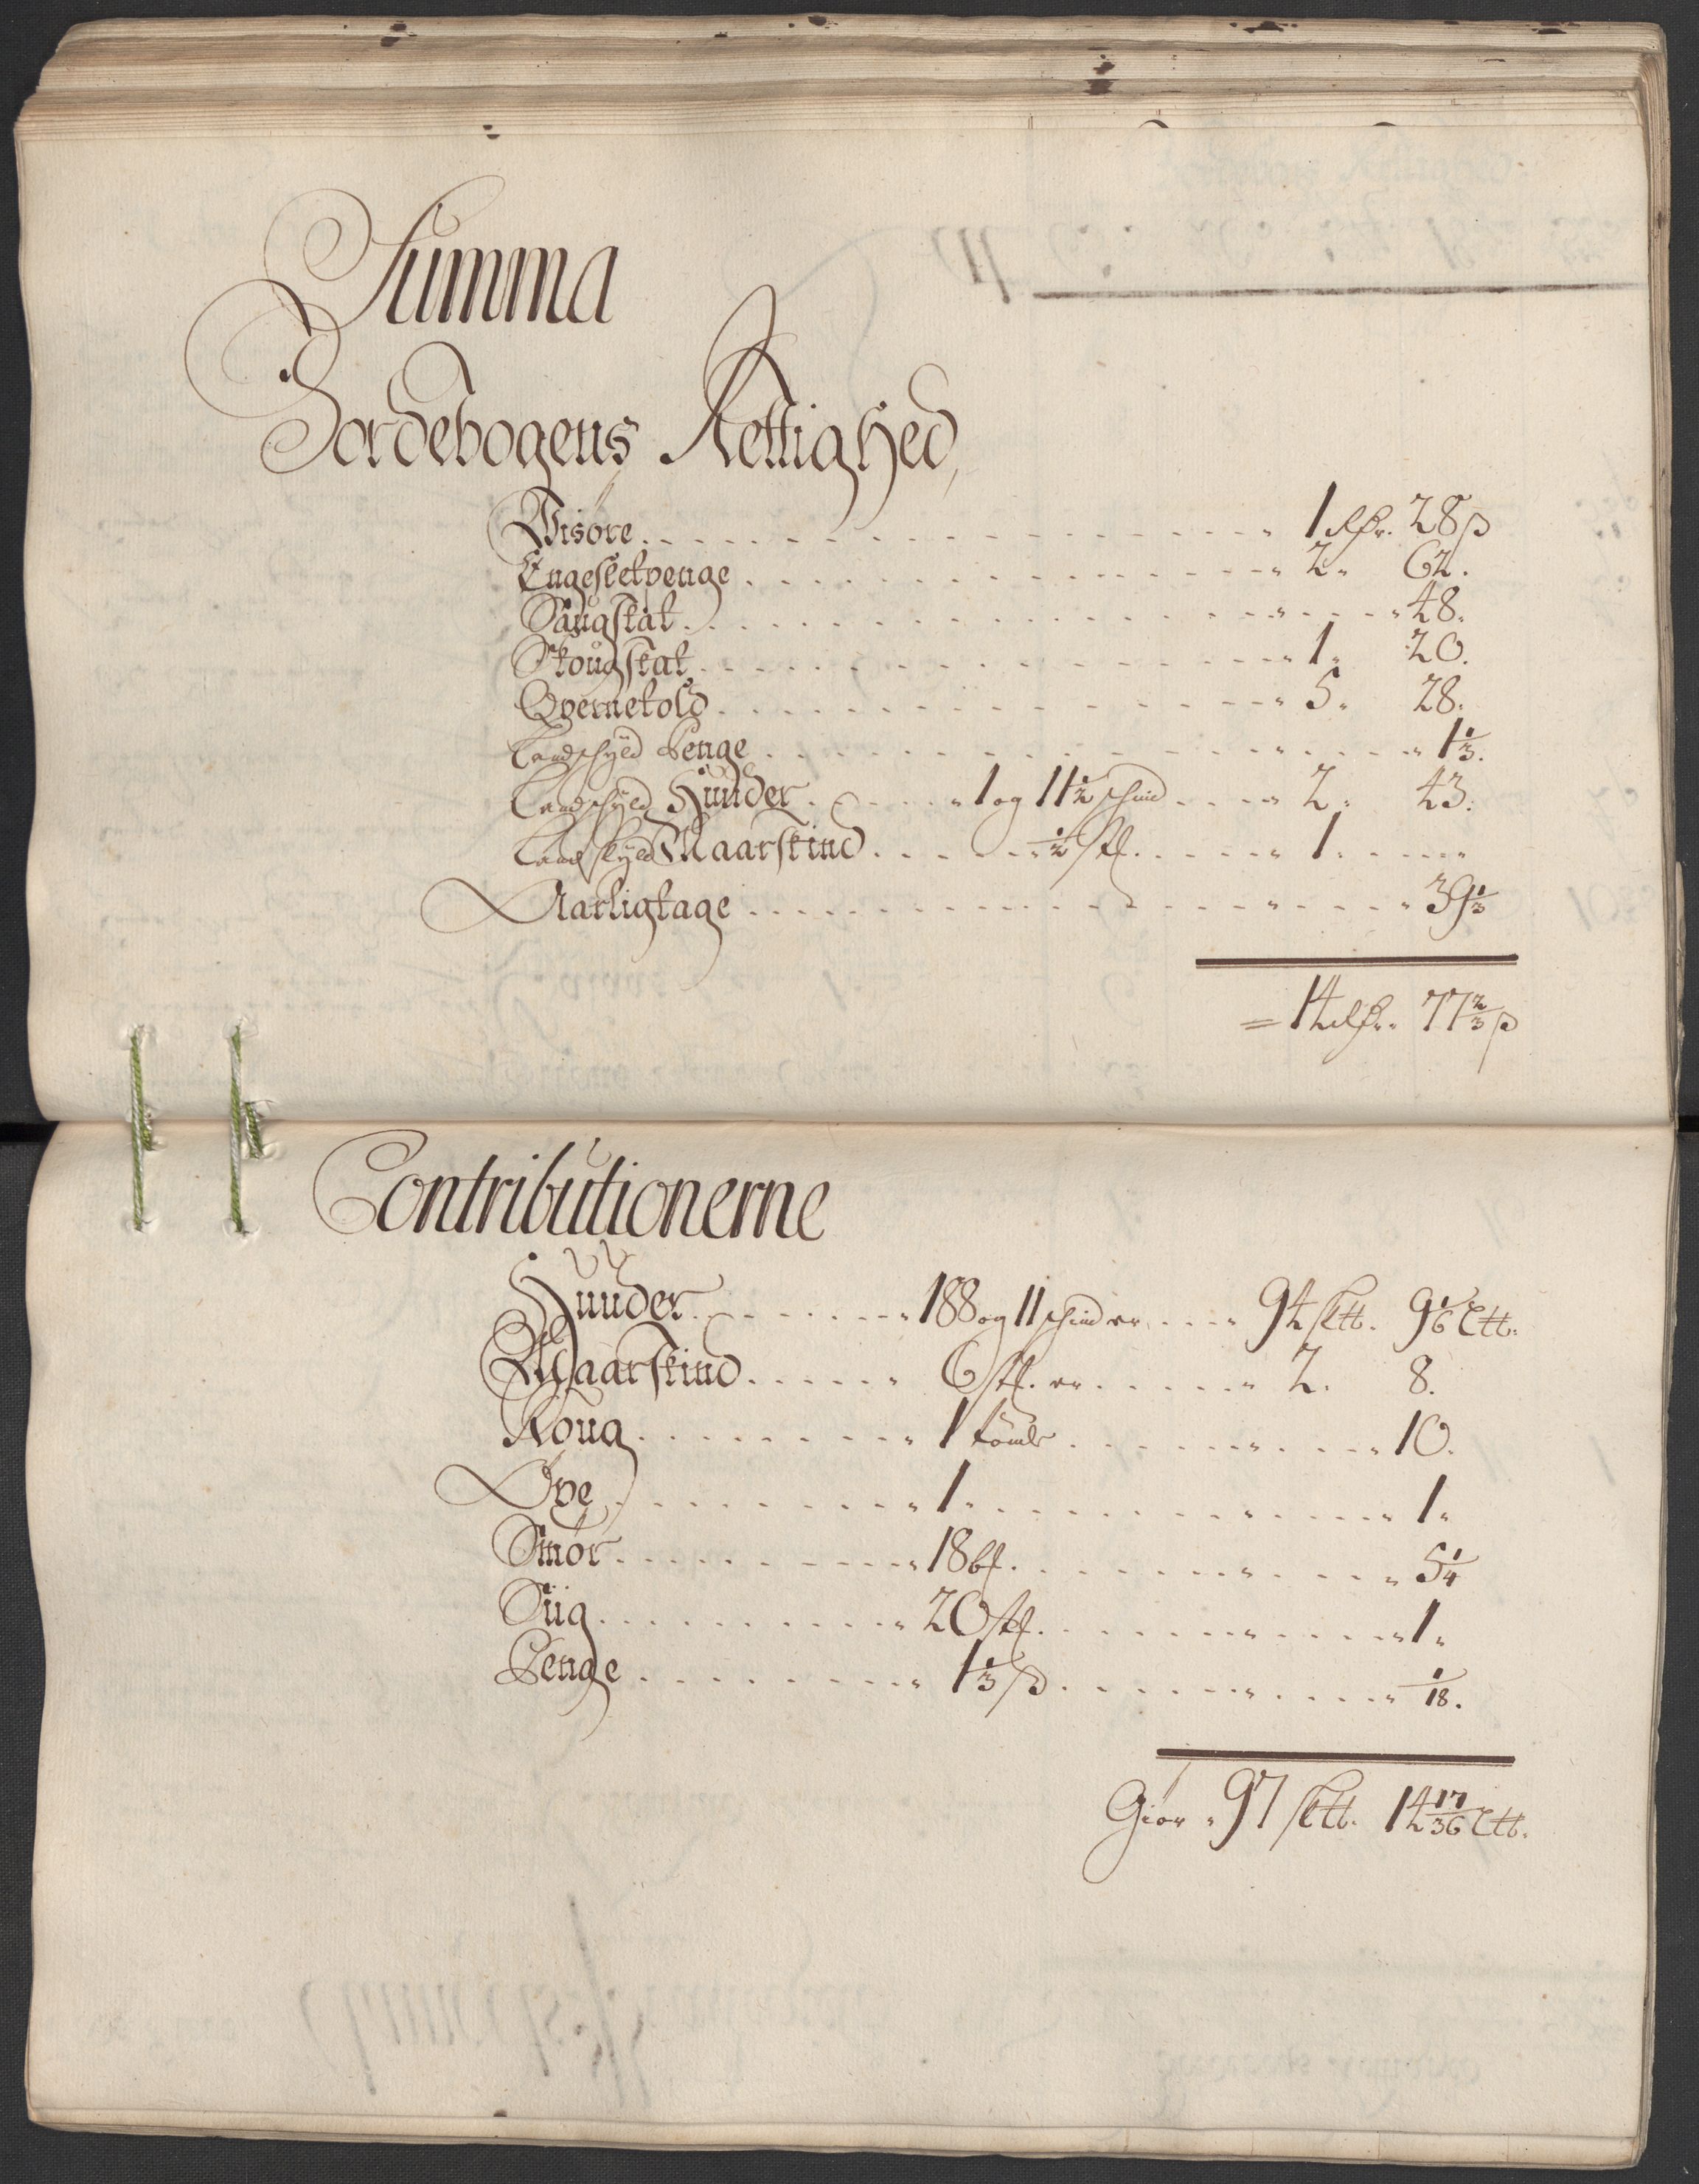 Summa
Jordebogens Rettighed,
Wisøre 1 Rdr. 28 s
Engesletpenge 2. 62.
Saugskat 48.
Skougskat 1. 20.
Qvernetold 5. 28.
Landschyld Penge 1 1/3.
Landschyld Huuder 1 og 11 1/2 schind 2. 43.
Landskyld Maarskind 1/2 st. 1.
Aarligtage 39 1/3
= 14 Rdr. 77 2/3 s
Contributionerne
Huuder 188 og 11 schind er 94 sktt. 9 1/6 Ltt.
Maarskind 6 st. er 2. 8.
Roug 1 tønde 10.
Øxe 1. 1.
Smør 18 b 5 1/4
Siig 20 st. 1.
Penge 1 1/3 s 1/18.
Giør 97 sktt. 14 17/36 Ltt.